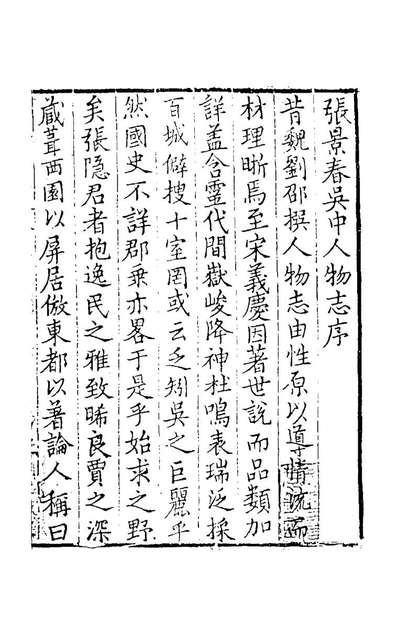 張景春吳中人物志序
昔魏劉邵撰人物志由性原以導情流而
材理晣焉至宋義慶因著世説而品類加
詳盖含靈代間嶽峻降神杜鳴表瑞泛採
百城僻搜十室罔或云乏矧吳之巨麗乎
然國史不詳郡乗亦畧于是乎始求之野
矣張隐君者抱逸民之雅致晞良賈之深
蔵葺西園以屏居倣東都以著論人稱曰